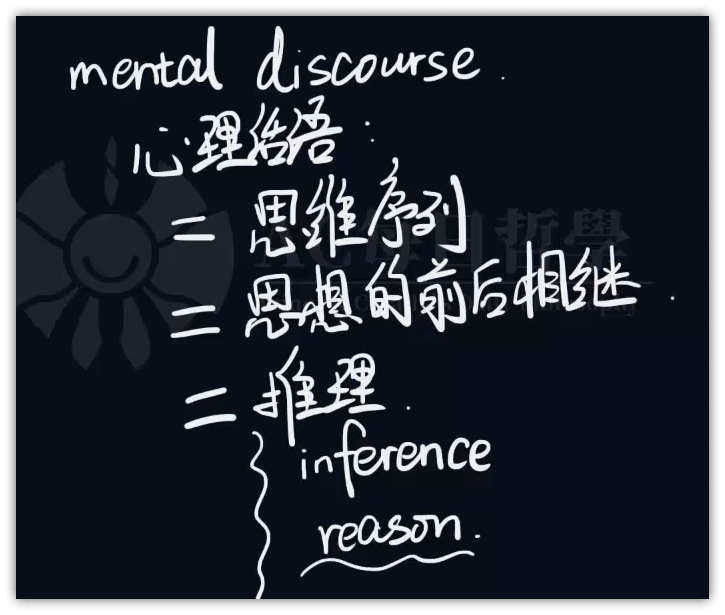 mental discourse.
心理话语:
= 思维序列
= 思想的前后相继.
= 推理.
inference
reason.
每日哲學